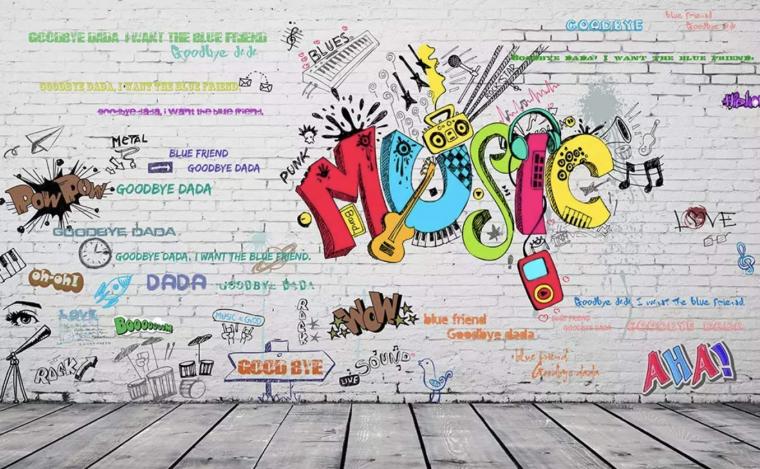 GOODBYE DADA I WANT THE BLUE FRIEND
Goodbye dada
BLUES
GOODBYE
blue friend
Goodbye dada
GOODBYE DADA! I WANT THE BLUE FRIEND.
GOODBYE DADA, I WANT THE BLUE FRIEND
goodbye dada, i want the blue friend.
METAL
PUNK
BLUE FRIEND
GOODBYE DADA
MUSIC
Band
POW POW
GOODBYE DADA
GOODBYE DADA
LOVE
GOODBYE DADA, I WANT THE BLUE FRIEND.
oh-oh!
DADA
GOODBYE DADA
Goodbye dada, I want the blue friend
LOVE
Booooooom
MUSIC is GOOD
ROCK
WOW
blue friend
Goodbye dada
BLUE FRIEND
GOODBYE DADA
GOODBYE DADA
ROCK
GOOD BYE
LIVE
SOUND
blue friend
Goodbye dada
AHA!